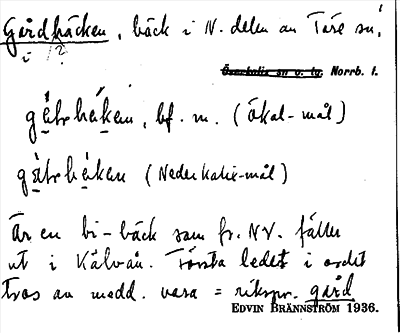 Gårdbäcken, bäck i N. delen av Töre sn,
i ?
Överkalix sn o. tg. Norrb. l.
bf. m. (Ökal-mål)
(Nederkalix-mål)
Är en bi-bäck som fr. NV. faller
ut i Kälvån. Första ledet i ordet
tros av medd. vara = rikspr. gård
EDVIN BRÄNNSTRÖM 1936.